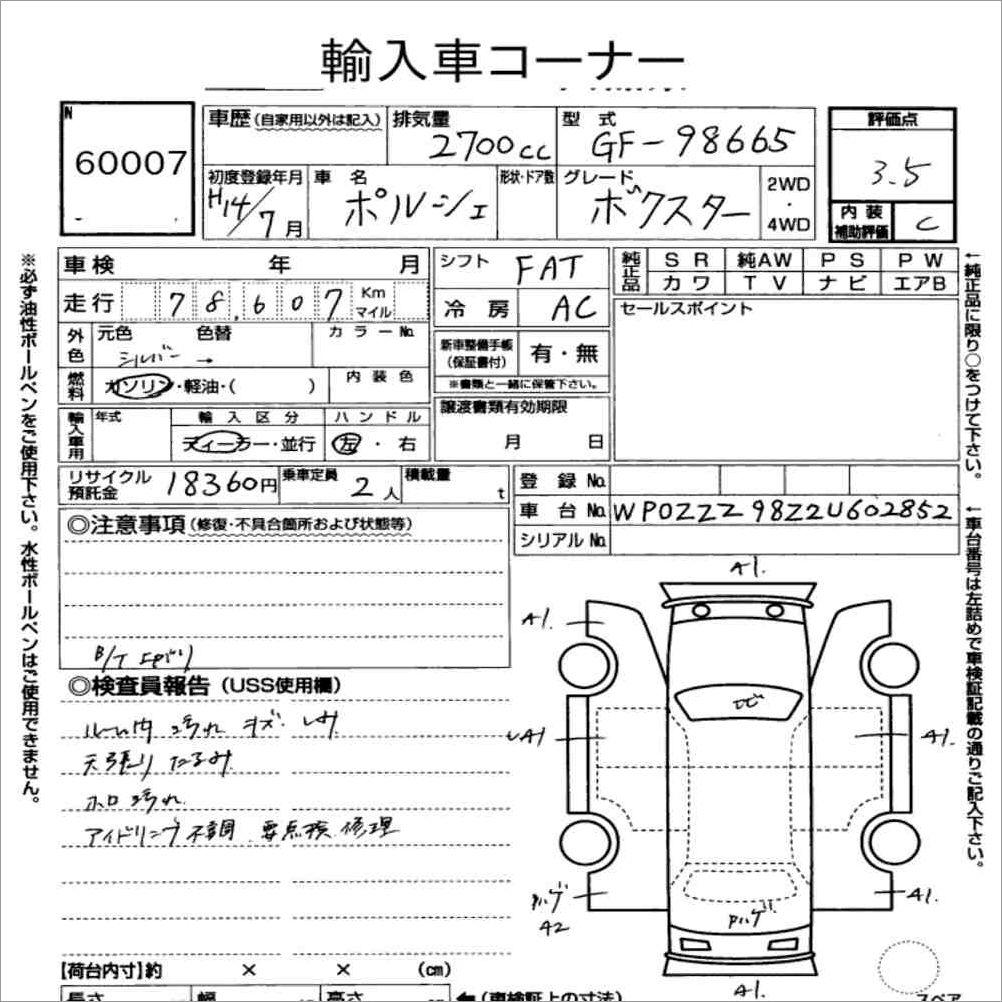 輸入車コーナー
N
60007
車歴(自家用以外は記入)
排気量
2700cc
型式
GF-98665
評価点
3.5
初度登録年月
H14/7月
車名
ポルシェ
形状・ドア数
グレード
ボクスター
2WD
・
4WD
内装
補助評価
C
車検 年 月
シフト
FAT
純正品
SR 純AW PS PW
カワ TV ナビ エアB
走行
78,607
Km
マイル
冷房
AC
セールスポイント
外色
元色 色替
カラーNo.
シルバー →
新車整備手帳
(保証書付)
有・無
※書類と一緒に保管下さい。
燃料
ガソリン・軽油・( )
内装色
譲渡書類有効期限
月 日
輸入車用
年式
輸入区分
ハンドル
ディーラー・並行
左・右
リサイクル
預託金
18360円
乗車定員
2人
積載量
t
登録No.
車台No.
WP0ZZZ98Z2U602852
シリアルNo.
◎注意事項(修復・不具合箇所および状態等)
◎検査員報告(USS使用欄)
ルーム内 汚れ キズ
天張り たるみ
ホロ 汚れ
アイドリング不調 要点検 修理
A1.
A1.
A1.
A1.
A1.
A2
A1.
【荷台内寸】約 × × (cm)
長さ 幅 高さ
←(車検証上の寸法)
スペア
※必ず油性ボールペンをご使用下さい。水性ボールペンはご使用できません。
←純正品に限り○をつけて下さい。
←車台番号は左詰めで車検証記載の通りご記入下さい。